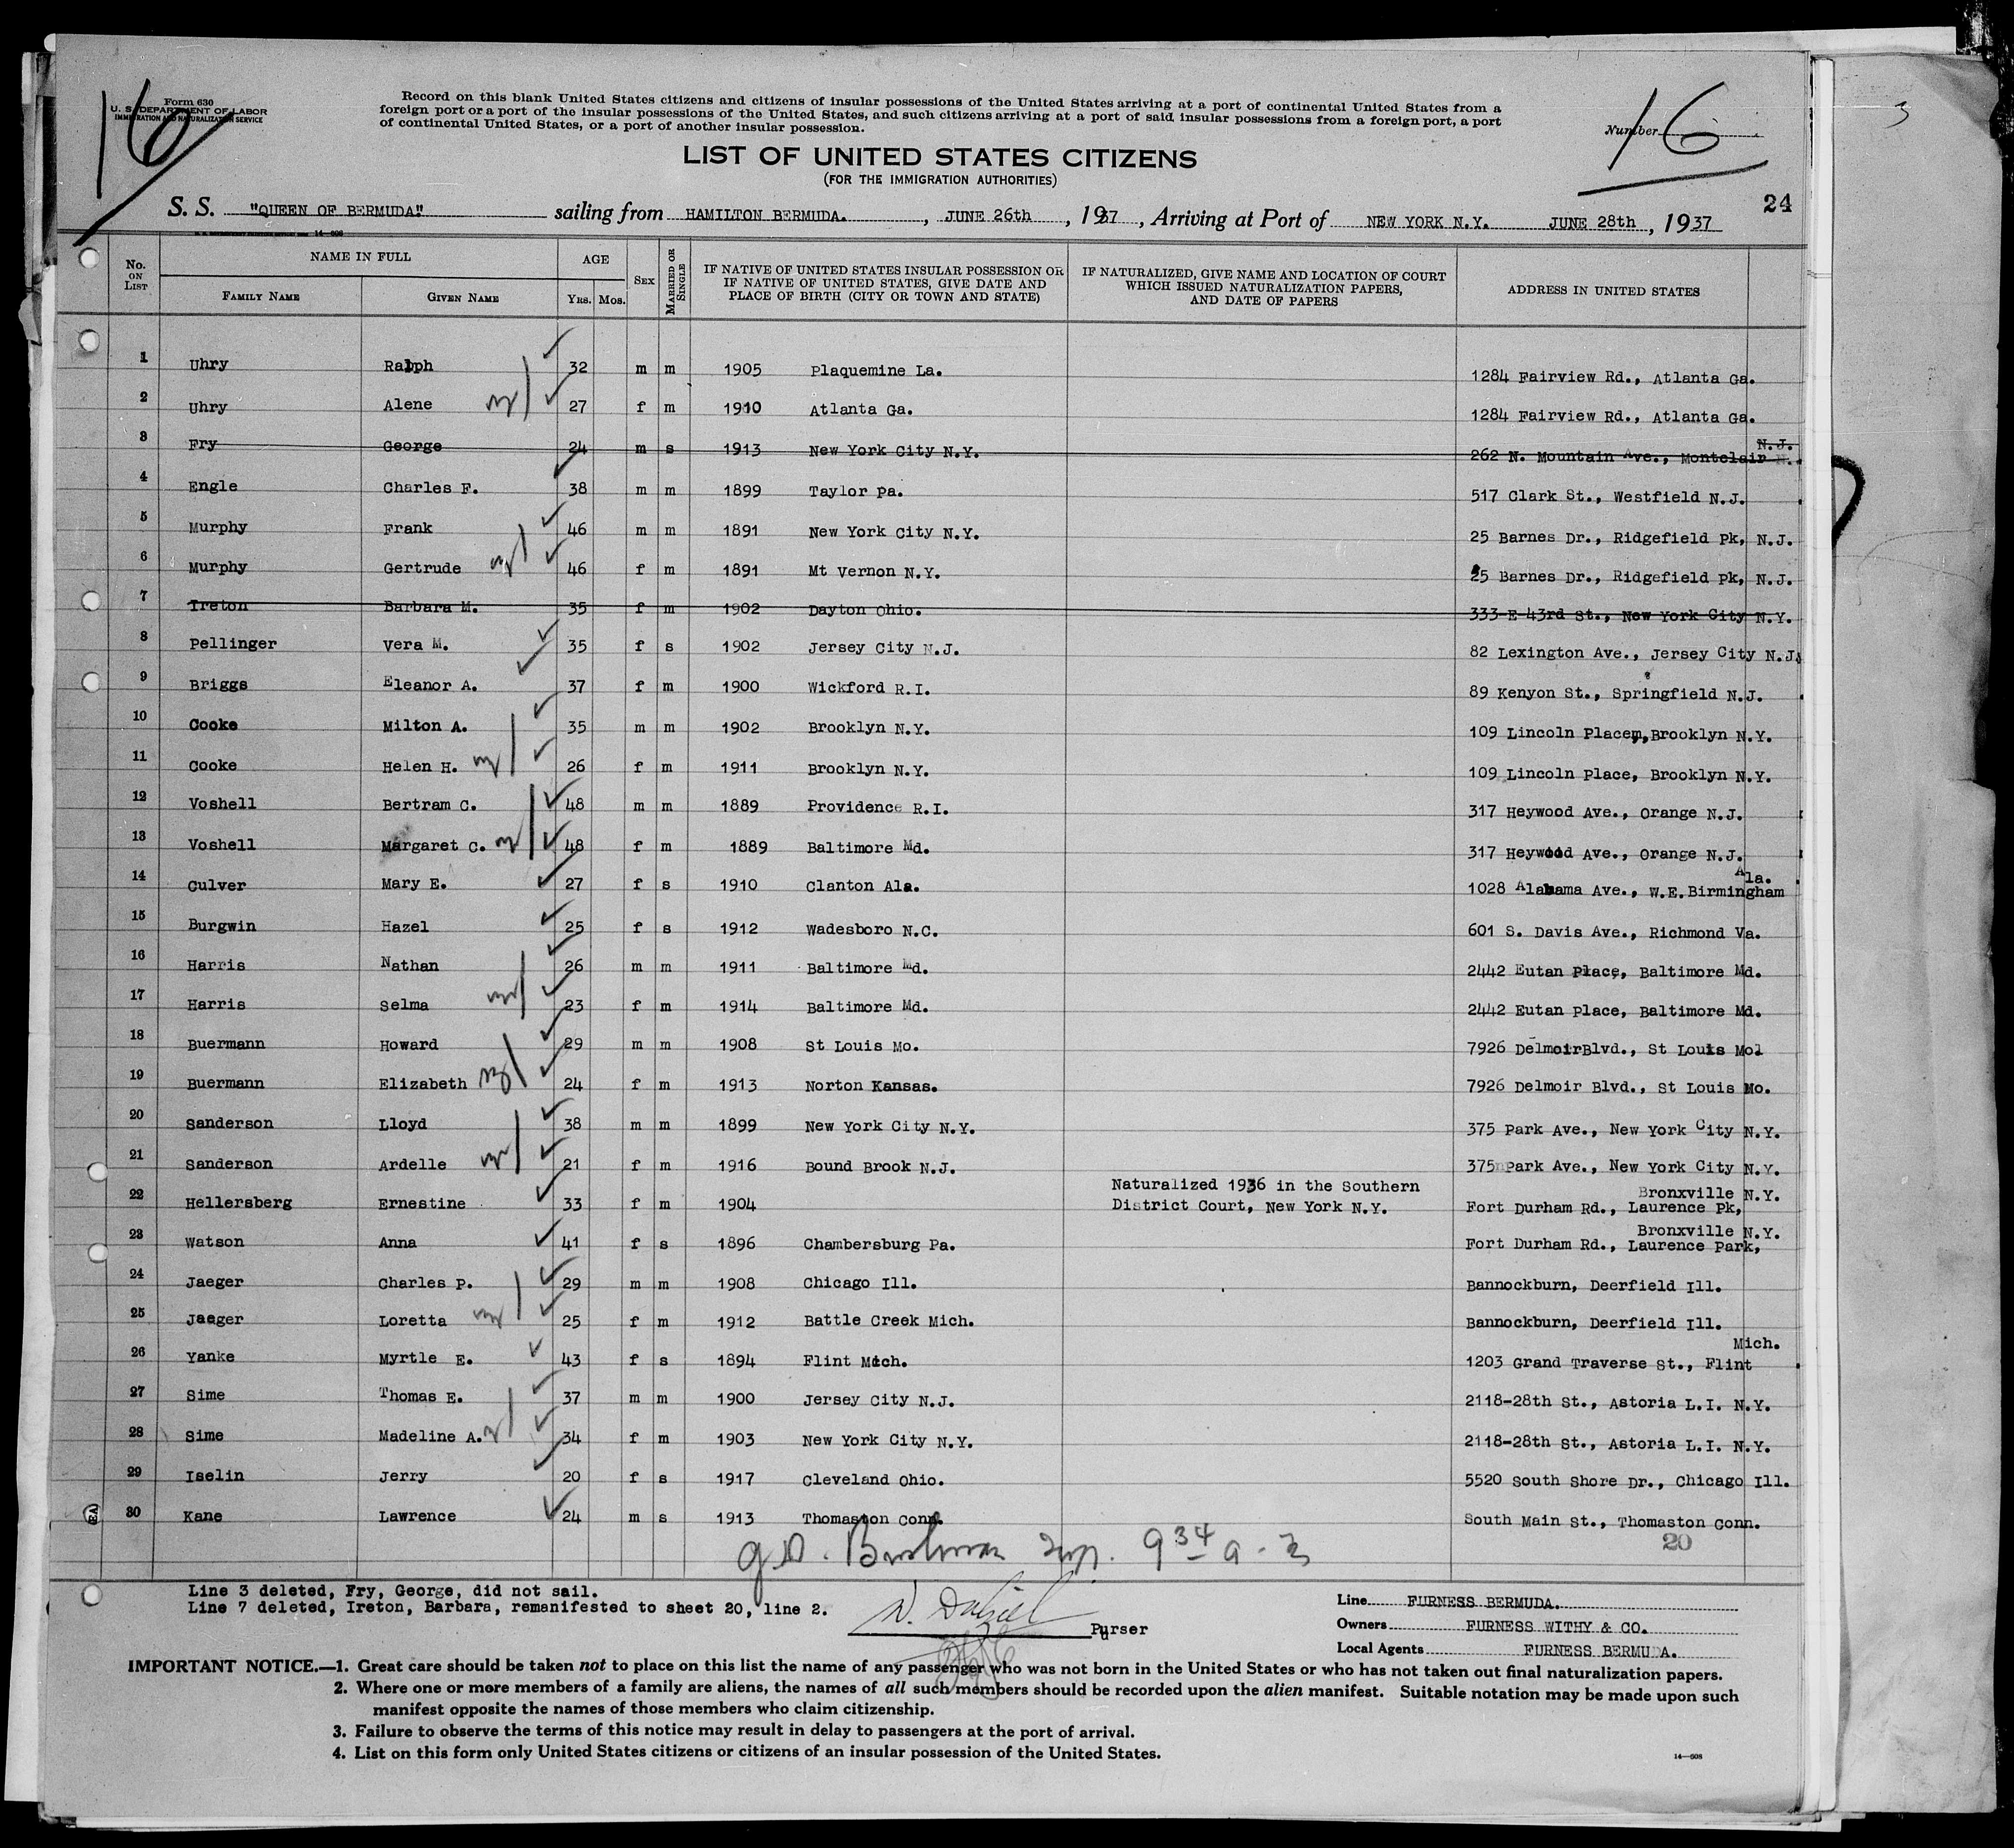 16
Form 630
U. S. DEPARTMENT OF LABOR
IMMIGRATION AND NATURALIZATION SERVICE
Record on this blank United States citizens and citizens of insular possessions of the United States arriving at a port of continental United States from a
foreign port or a port of the insular possessions of the United States, and such citizens arriving at a port of said insular possessions from a foreign port, a port
of continental United States, or a port of another insular possession.
Number 16
3
LIST OF UNITED STATES CITIZENS
(FOR THE IMMIGRATION AUTHORITIES)
24
S. S. "QUEEN OF BERMUDA" sailing from HAMILTON BERMUDA. , JUNE 26th , 1937 , Arriving at Port of NEW YORK N.Y. JUNE 28th , 1937
No. ON LIST NAME IN FULL FAMILY NAME GIVEN NAME AGE YRS. MOS. SEX MARRIED OR SINGLE IF NATIVE OF UNITED STATES INSULAR POSSESSION OR IF NATIVE OF UNITED STATES, GIVE DATE AND PLACE OF BIRTH (CITY OR TOWN AND STATE) IF NATURALIZED, GIVE NAME AND LOCATION OF COURT WHICH ISSUED NATURALIZATION PAPERS, AND DATE OF PAPERS ADDRESS IN UNITED STATES
1 Uhry Ralph 32 m m 1905 Plaquemine La. 1284 Fairview Rd., Atlanta Ga.
2 Uhry Alene 27 f m 1910 Atlanta Ga. 1284 Fairview Rd., Atlanta Ga.
3 Fry George 24 m s 1913 New York City N.Y. 262 N. Mountain Ave., Montclair N.J.
4 Engle Charles F. 38 m m 1899 Taylor Pa. 517 Clark St., Westfield N.J.
5 Murphy Frank 46 m m 1891 New York City N.Y. 25 Barnes Dr., Ridgefield Pk, N.J.
6 Murphy Gertrude 46 f m 1891 Mt Vernon N.Y. 25 Barnes Dr., Ridgefield Pk, N.J.
7 Ireton Barbara M. 35 f m 1902 Dayton Ohio. 333-E-43rd St., New York City N.Y.
8 Pellinger Vera M. 35 f s 1902 Jersey City N.J. 82 Lexington Ave., Jersey City N.J.
9 Briggs Eleanor A. 37 f m 1900 Wickford R.I. 89 Kenyon St., Springfield N.J.
10 Cooke Milton A. 35 m m 1902 Brooklyn N.Y. 109 Lincoln Place, Brooklyn N.Y.
11 Cooke Helen H. 26 f m 1911 Brooklyn N.Y. 109 Lincoln Place, Brooklyn N.Y.
12 Voshell Bertram C. 48 m m 1889 Providence R.I. 317 Heywood Ave., Orange N.J.
13 Voshell Margaret C. 48 f m 1889 Baltimore Md. 317 Heywood Ave., Orange N.J.
14 Culver Mary E. 27 f s 1910 Clanton Ala. 1028 Alabama Ave., W.E.Birmingham Ala.
15 Burgwin Hazel 25 f s 1912 Wadesboro N.C. 601 S. Davis Ave., Richmond Va.
16 Harris Nathan 26 m m 1911 Baltimore Md. 2442 Eutan Place, Baltimore Md.
17 Harris Selma 23 f m 1914 Baltimore Md. 2442 Eutan Place, Baltimore Md.
18 Buermann Howard 29 m m 1908 St Louis Mo. 7926 DelmoirBlvd., St Louis Mol
19 Buermann Elizabeth 24 f m 1913 Norton Kansas. 7926 Delmoir Blvd., St Louis Mo.
20 Sanderson Lloyd 38 m m 1899 New York City N.Y. 375 Park Ave., New York City N.Y.
21 Sanderson Ardelle 21 f m 1916 Bound Brook N.J. 375 Park Ave., New York City N.Y.
22 Hellersberg Ernestine 33 f m 1904 Naturalized 1936 in the Southern District Court, New York N.Y. Fort Durham Rd., Laurence Pk, Bronxville N.Y.
23 Watson Anna 41 f s 1896 Chambersburg Pa. Fort Durham Rd., Laurence Park, Bronxville N.Y.
24 Jaeger Charles P. 29 m m 1908 Chicago Ill. Bannockburn, Deerfield Ill.
25 Jaeger Loretta 25 f m 1912 Battle Creek Mich. Bannockburn, Deerfield Ill.
26 Yanke Myrtle E. 43 f s 1894 Flint Mich. 1203 Grand Traverse St., Flint Mich.
27 Sime Thomas E. 37 m m 1900 Jersey City N.J. 2118-28th St., Astoria L.I. N.Y.
28 Sime Madeline A. 34 f m 1903 New York City N.Y. 2118-28th St., Astoria L.I. N.Y.
29 Iselin Jerry 20 f s 1917 Cleveland Ohio. 5520 South Shore Dr., Chicago Ill.
30 Kane Lawrence 24 m s 1913 Thomaston Conn. South Main St., Thomaston Conn.
20
Line 3 deleted, Fry, George, did not sail.
Line 7 deleted, Ireton, Barbara, remanifested to sheet 20, line 2.
Purser
Line FURNESS BERMUDA.
Owners FURNESS WITHY & CO.
Local Agents FURNESS BERMUDA.
IMPORTANT NOTICE.—1. Great care should be taken not to place on this list the name of any passenger who was not born in the United States or who has not taken out final naturalization papers.
2. Where one or more members of a family are aliens, the names of all such members should be recorded upon the alien manifest. Suitable notation may be made upon such
manifest opposite the names of those members who claim citizenship.
3. Failure to observe the terms of this notice may result in delay to passengers at the port of arrival.
4. List on this form only United States citizens or citizens of an insular possession of the United States.
14—608